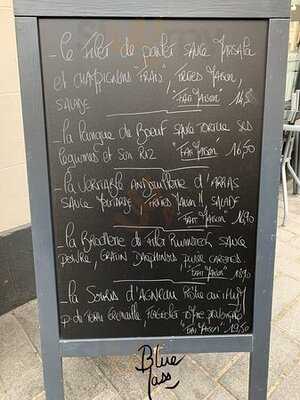 - le Filet de poulet sauce Marsala
et champignons "Frais", Frites Maison,
salade "Fait Maison" 14,50
- la langue de Boeuf sauce tortue ses
légumes et son Riz "Fait Maison" 16,50
- la Véritable Andouillette d'Arras
sauce Moutarde, Frites Maison, salade
"Fait Maison" 16,90
- la Brochette de Filet sauce
poivre, Gratin Dauphinois, purée carottes.
"Fait Maison" 18,90
- la Souris d'Agneau au thym
p. de terre Grenaille,
"Fait Maison" 19,50
Blue
Jass